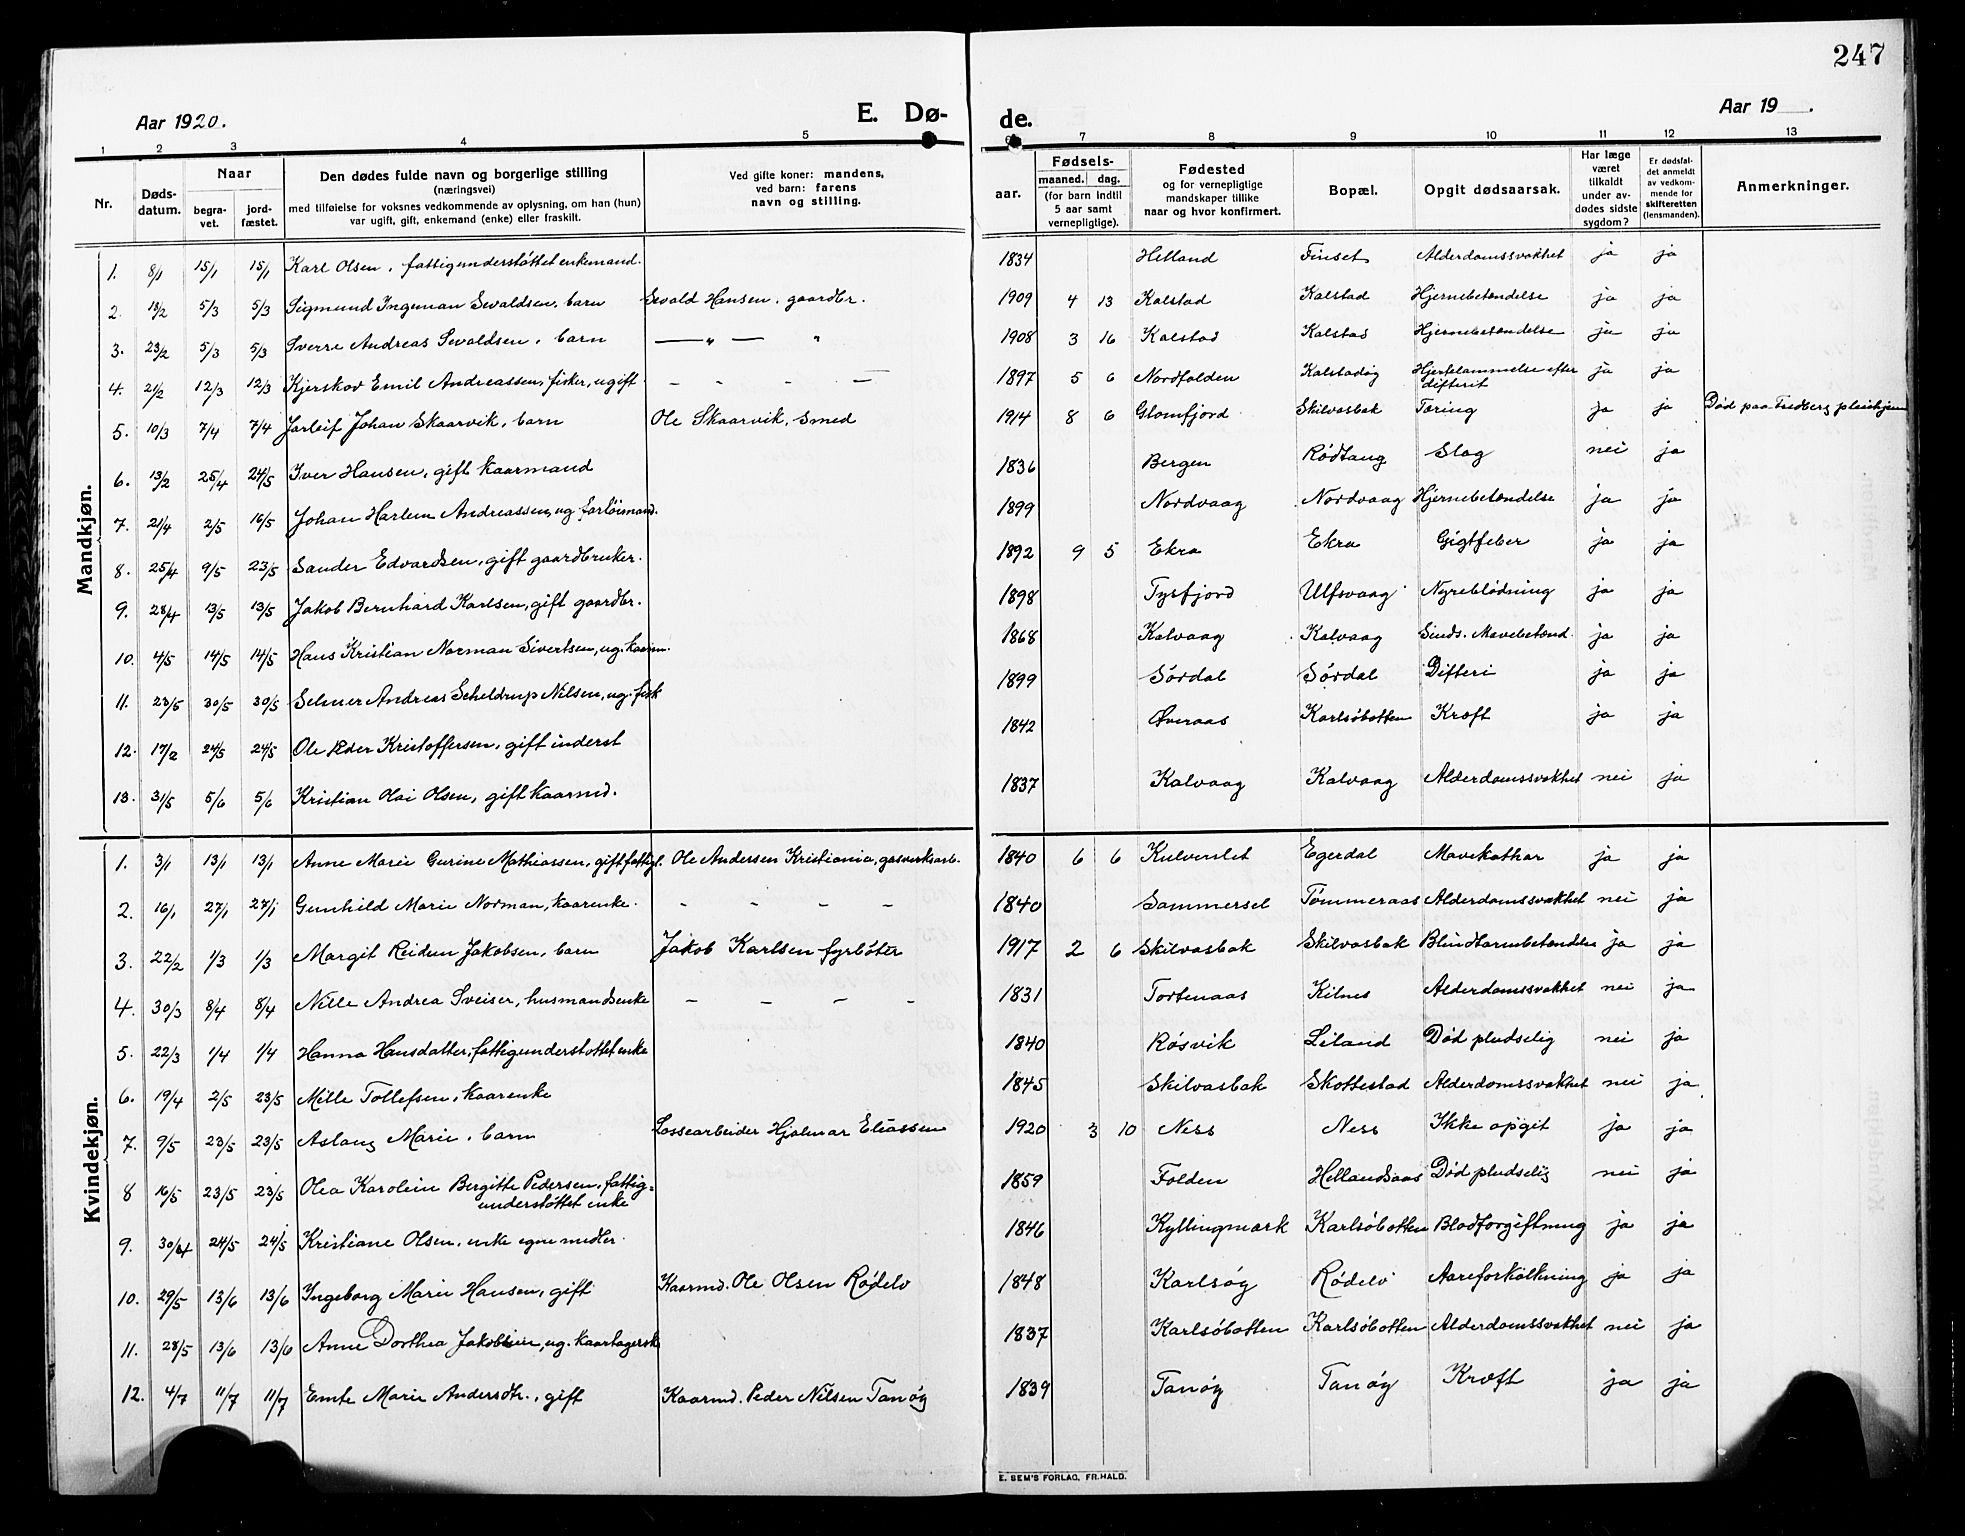 247
Aar 1920.
E. Dø-
de.
Aar 19 .
1 2 3 4 5 6 7 8 9 10 11 12 13
Nr.
Døds-
datum.
Naar
begra-
vet.
jord-
fæstet.
Den dødes fulde navn og borgerlige stilling
(næringsvei)
med tilføielse for voksnes vedkommende av oplysning, om han (hun)
var ugift, gift, enkemand (enke) eller fraskilt.
Ved gifte koner: mandens,
ved barn: farens
navn og stilling.
aar.
Fødsels-
maaned. dag.
(for barn indtil
5 aar samt
vernepligtige).
Fødested
og for vernepligtige
mandskaper tillike
naar og hvor konfirmert.
Bopæl.
Opgit dødsaarsak.
Har læge
været
tilkaldt
under av-
dødes sidste
sygdom?
Er dødsfal-
det anmeldt
av vedkom-
mende for
skifteretten
(lensmanden).
Anmerkninger.
Mandkjøn.
1. 8/1 15/1 15/1 Karl Olsen, fattigunderstøttet enkemand. 1834 Helland Finset Alderdomssvakhet ja ja
2. 13/2 5/3 5/3 Sigmund Ingeman Sevaldsen, barn Sevald Hansen, gaardbr. 1909 4 13 Kalstad Kalstad Hjernebetændelse ja ja
3. 23/2 5/3 5/3 Sverre Andreas Sevaldsen, barn — " — " 1908 3 16 Kalstad Kalstad Hjernebetændelse ja ja
4. 21/2 12/3 12/3 Kjerskov Emil Andreassen, fisker, ugift - - - - 1897 5 6 Nordfolden Kalstadøy Hjertelammelse efter difterit ja ja
5. 10/3 7/4 7/4 Jarleif Johan Skaarvik, barn Ole Skaarvik, smed 1914 8 6 Glomfjord Skilvasbak Tæring ja ja Død paa Fredberg pleiehjem
6. 13/2 25/4 24/5 Iver Hansen, gift kaarmand 1836 Bergen Rødtang Slag nei ja
7. 21/4 2/5 16/5 Johan Harlem Andreassen, ug. forløimand. 1899 Nordvaag Nordvaag Hjernebetændelse ja ja
8. 25/4 9/5 23/5 Sander Edvardsen, gift gaardbruker. 1892 9 5 Ekra Ekra Gigtfeber ja ja
9. 28/4 13/5 13/5 Jakob Bernhard Karlsen, gift gaardbr. 1898 Tysfjord Ulfsvaag Nyreblødning ja ja
10. 4/5 14/5 14/5 Hans Kristian Norman Sivertsen, ug. kaarm. 1868 Kalvaag Kalvaag Sinds. Mavebetænd. ja ja
11. 23/5 30/5 30/5 Selmer Andreas Scheldrup Nilsen, ug. fisk 1899 Sørdal Sørdal Difteri ja ja
12. 17/2 24/5 24/5 Ole Peder Kristoffersen, gift inderst 1842 Øveraas Karlsøbotten Kræft ja ja
13. 31/5 5/6 5/6 Kristian Olai Olsen, gift kaarmd. 1837 Kalvaag Kalvaag Alderdomssvakhet nei ja
Kvindekjøn.
1. 3/1 13/1 13/1 Anne Marie Gurine Mathiassen, gift fattigl. Ole Andersen Kristiania, gasverksarb. 1840 6 6 Kulvenlet Egerdal Mavekathar ja ja
2. 16/1 27/1 27/1 Gunhild Marie Norman, kaarenke. - - - - 1840 Sommersel Tømmeraas Alderdomssvakhet nei ja
3. 22/2 1/3 1/3 Margit Reidun Jakobsen, barn Jakob Karlsen fyrbøter 1917 2 6 Skilvasbak Skilvasbak Blindtarmbetændelse ja ja
4. 30/3 8/4 8/4 Nille Andrea Sveiser, husmandsenke - - - - 1831 Tortenaas Kilnes Alderdomssvakhet nei ja
5. 22/3 1/4 1/4 Hanna Hansdatter, fattigunderstøttet enke 1840 Røsvik Leland Død pludselig nei ja
6. 19/4 2/5 23/5 Mille Tollefsen, kaarenke 1845 Skilvasbak Skottestad Alderdomssvakhet nei ja
7. 9/5 23/5 23/5 Aslaug Marie, barn Lossearbeider Hjalmar Eliassen 1920 3 10 Ness Ness Ikke opgit ja ja
8 16/5 23/5 23/5 Olea Karolein Bergitte Pedersen, fattig=
understøttet enke 1859 Folden Hellandsaas Død pludselig nei ja
9. 30/4 24/5 24/5 Kristiane Olsen, enke egne midler. 1846 Kyllingmark Karlsøbotten Blodforgiftning ja ja
10. 29/5 13/6 13/6 Ingeborg Marie Hansen, gift Kaarmd. Ole Olsen Rødelv 1848 Karlsøy Rødelv Aareforkalkning ja ja
11. 28/5 13/6 13/6 Anne Dorthea Jakobsen, ug. kaartagersk 1837 Karlsøbotten Karlsøbotten Alderdomssvakhet nei ja
12. 4/7 11/7 11/7 Emte Marie Andersdtr., gift Kaarmd. Peder Nilsen Tanøy 1839 Tanøy Tanøy Kræft ja ja
E. SEM'S FORLAG, FR.HALD.